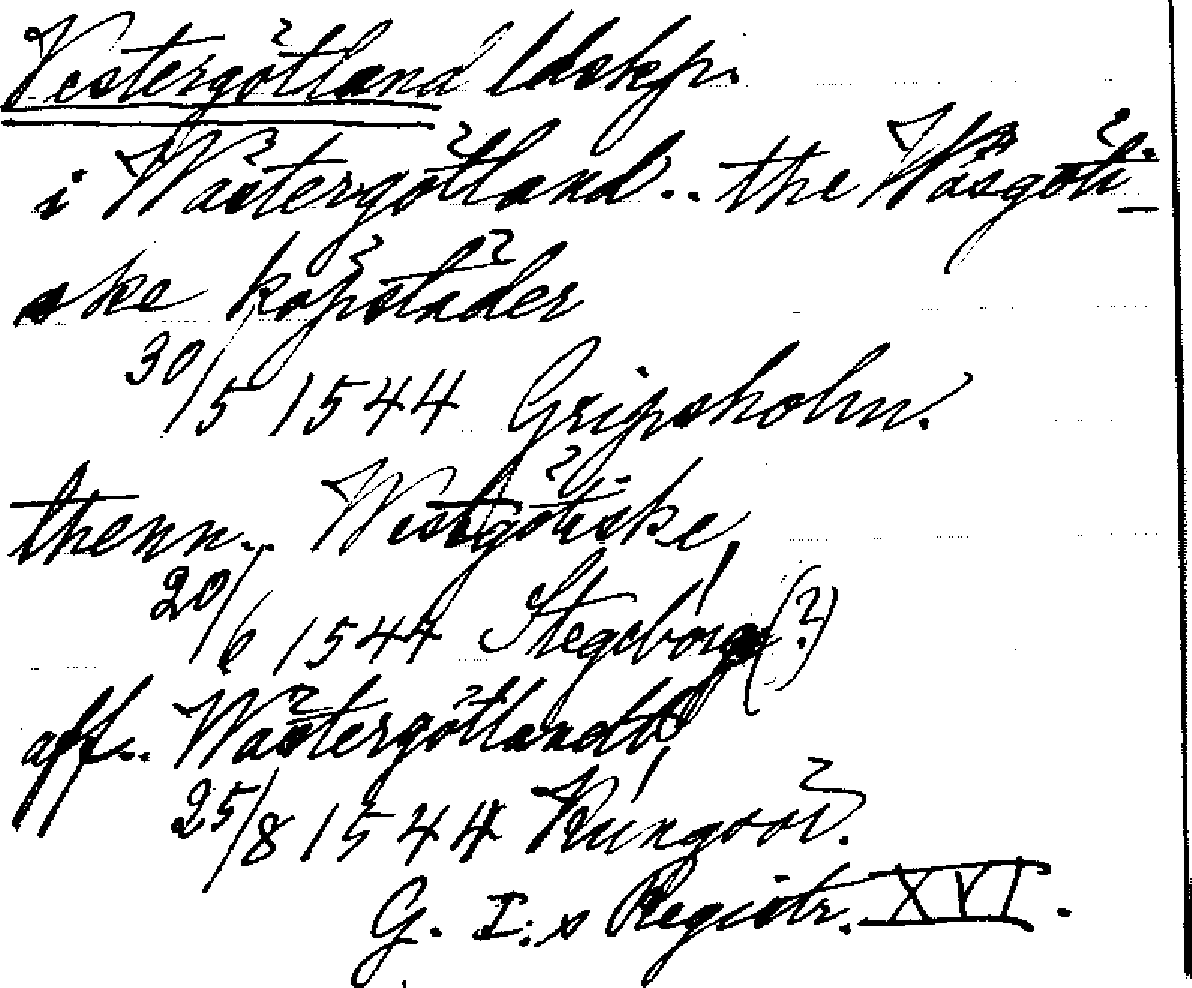 Vestergötland ldskp.
i Wästergötland.. the Wäsgöti-
ske köpstäder
30/5 1544 Gripsholm.
thenn.. Westgötiske
20/6 1544 Stegeborg (?)
aff.. Wästergötlandt
25/8 1544 Kungsör.
G. I:s Registr. XVI.